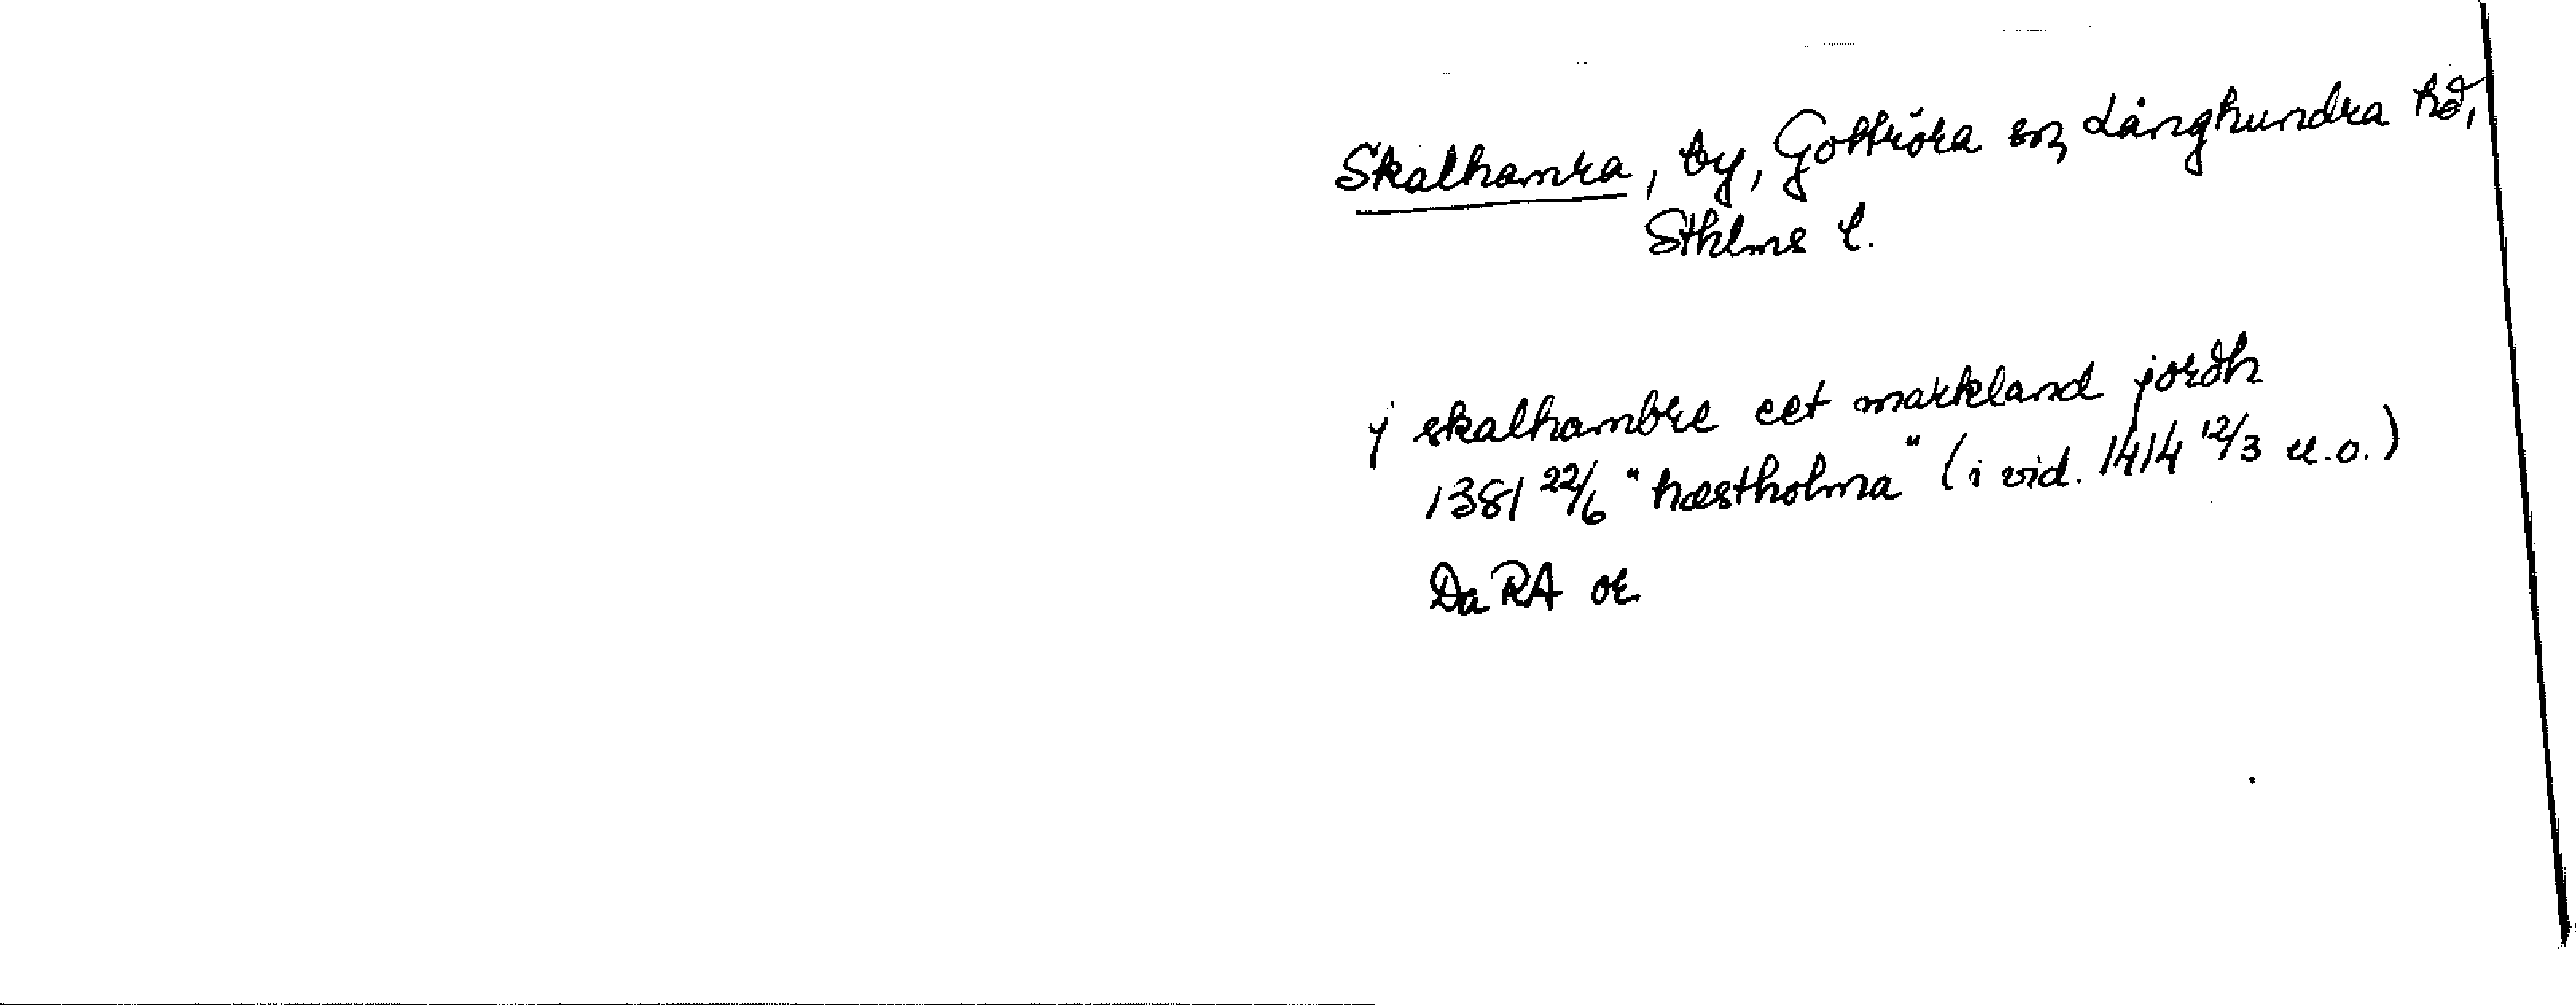 Skalhamra, by, Gottröra sn, Långhundra hd,
Sthlms l.
j skalhambre eet markland jordh
1381 22/6 "hæstholma" (i vid. 1414 12/3 u.o.)
Da RA or